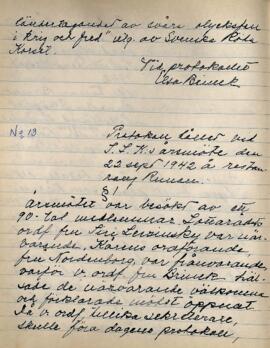 i krig och fred" utg. av Svenska Röda
Korset.
Vid protokollet
Nº 13
Protokoll fört vid
årsmöte den
22 sept 1942 å restau-
rang Runan.
§1
Årsmötet var besökt av ett
90-tal medlemmar. Lottaråds
ordf. fru Siri var när-
varande. Kårens ordförande,
fru Nordenborg, var frånvarande
varför v. ordf. fru Brinck häl-
sade de närvarande välkomna
och förklarade mötet öppnat.
Då v. ordf. tillika sekreterare,
skulle föra dagens protokoll,